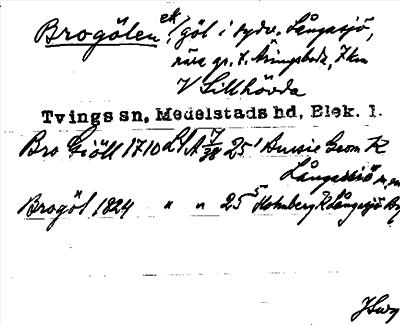 Brogölen ek, göl i sydv. Långasjö,
nära gr. t. Äringsboda, 7 km
V Sillhövda
Tvings sn, Medelstads hd, Blek. l.
Bro Giöll 1710 LSA 7/38 25¹ Aussie Geom K
Långasiö
Brogöl 1824 " " 25⁵ Holmberg K Långasjö